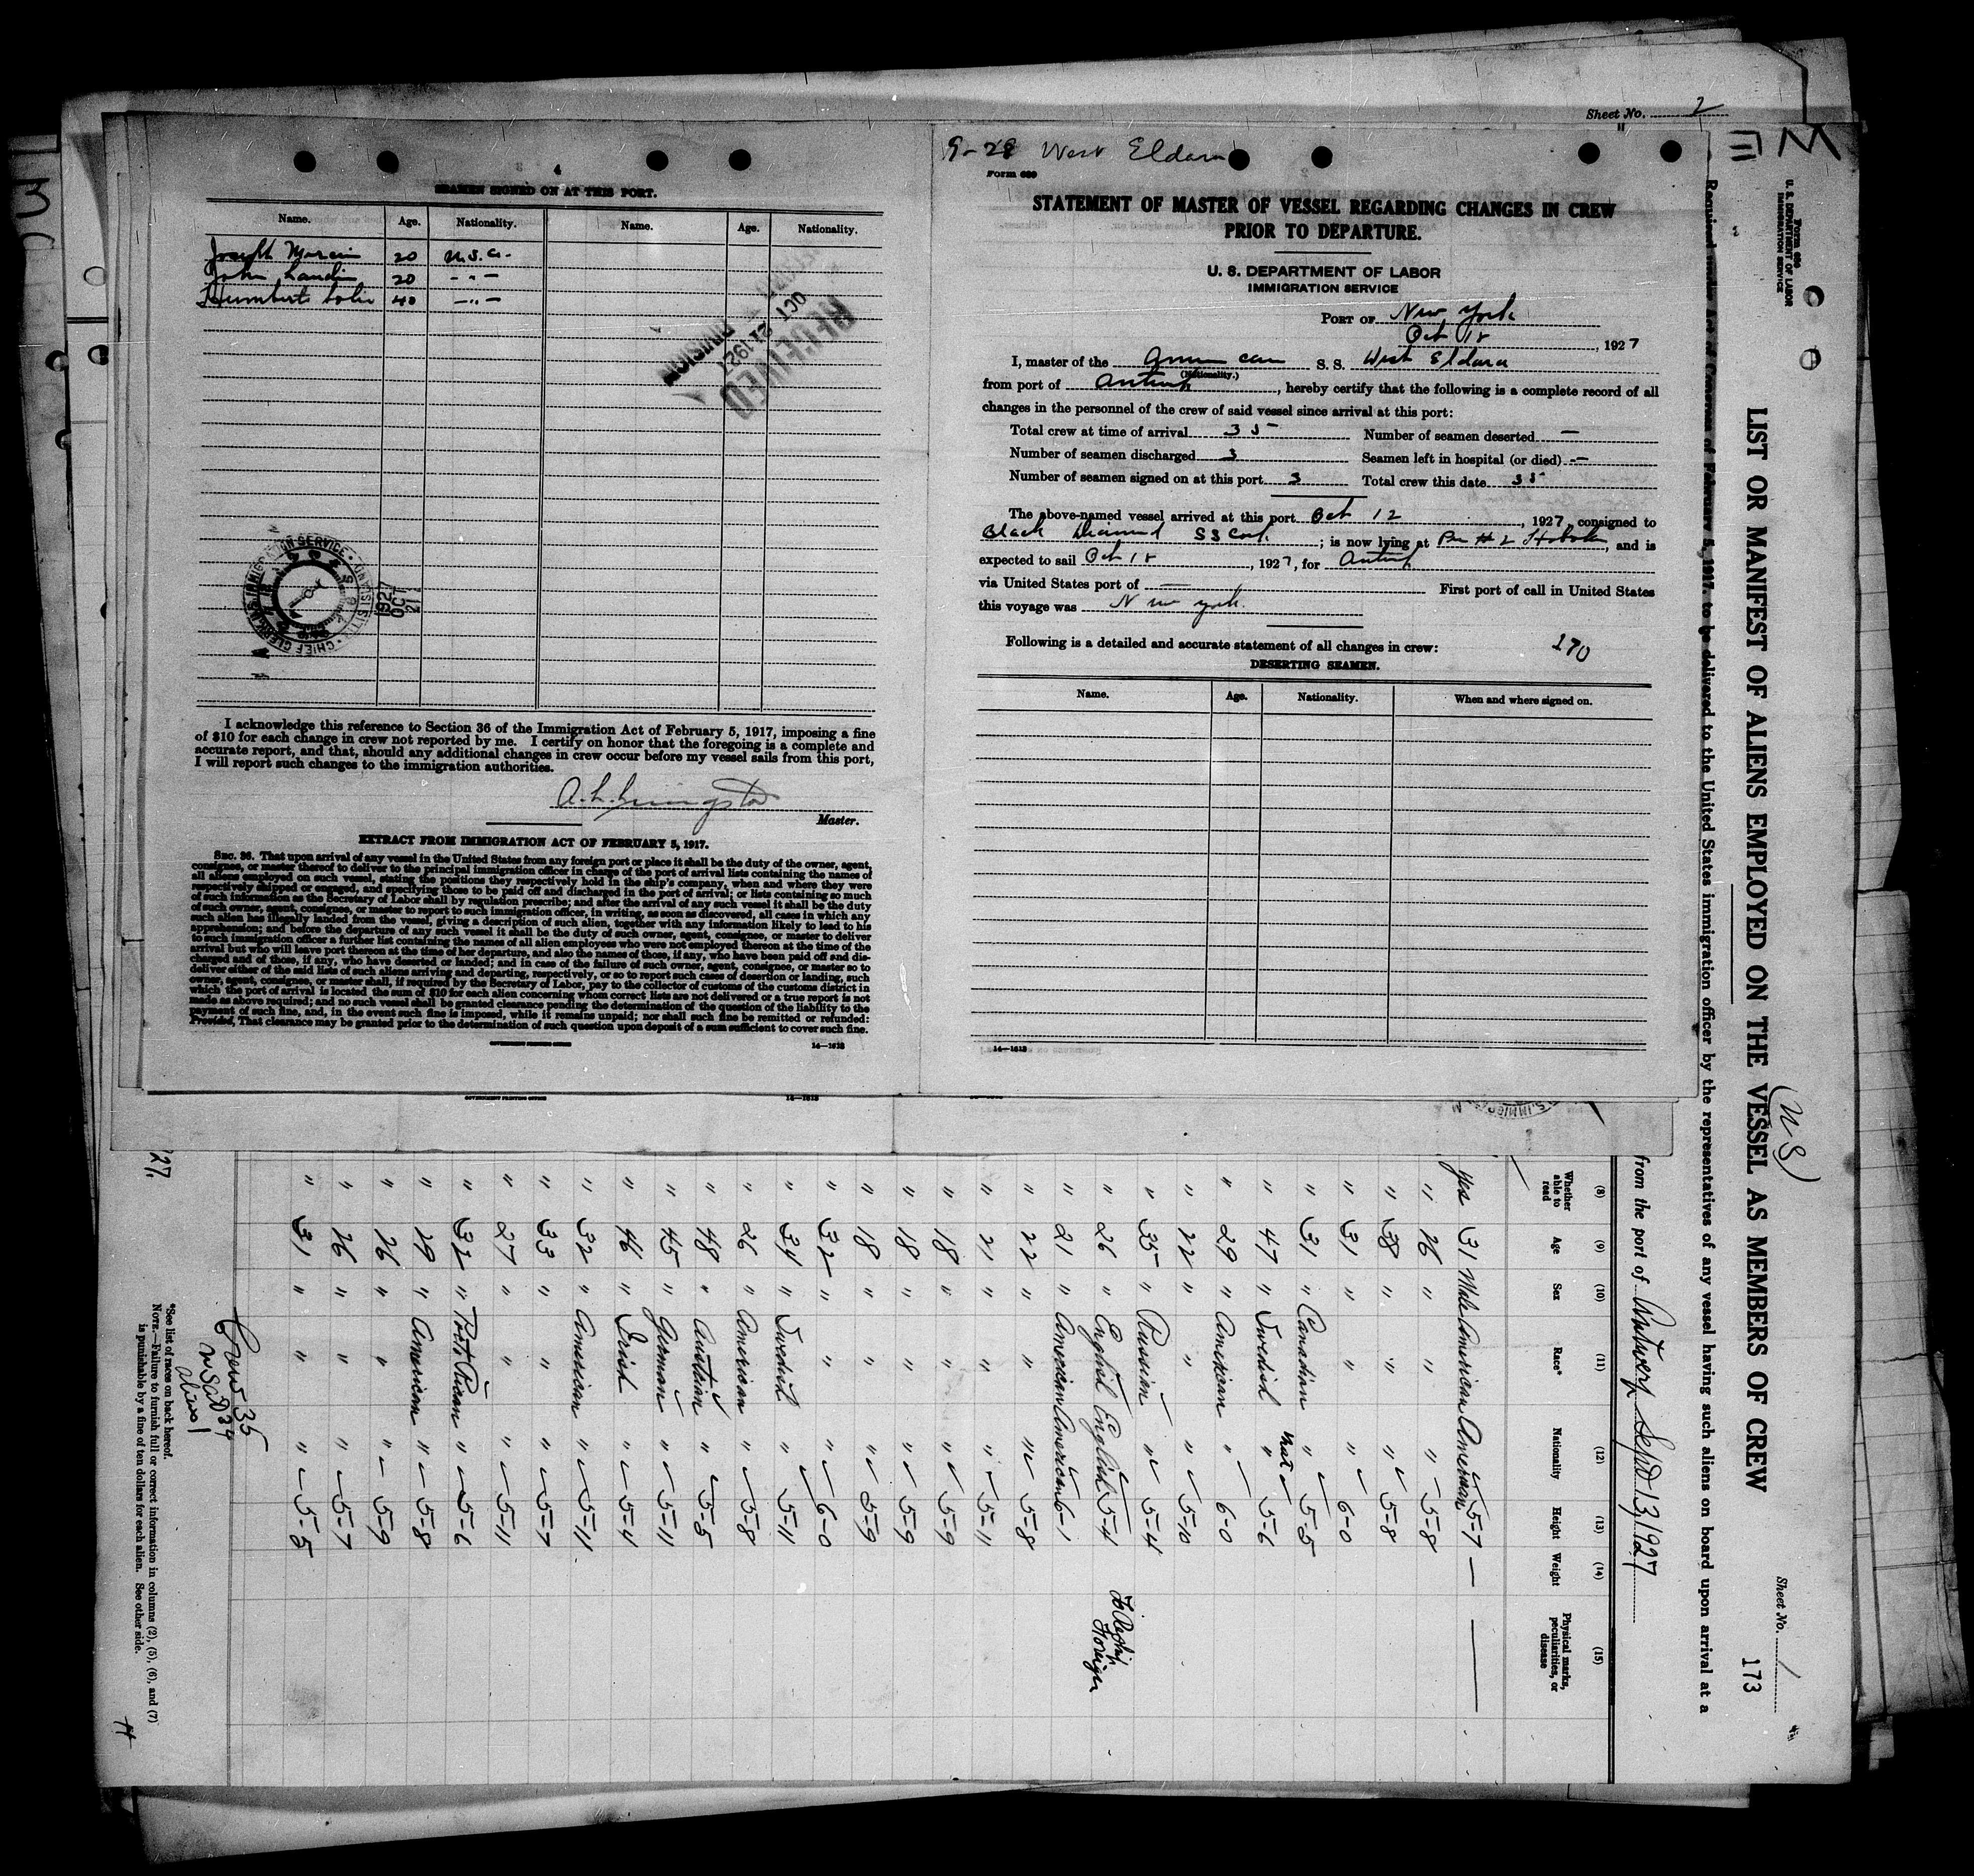 Sheet No. 2
4
SEAMEN SIGNED ON AT THIS PORT.
Name. Age. Nationality. Name. Age. Nationality.
Joseph 20 U.S.A.
John Landin 20 - " -
Humberto 40 - " -
RECEIVED
OCT 21 1927
DIVISION
I acknowledge this reference to Section 36 of the Immigration Act of February 5, 1917, imposing a fine
of $10 for each change in crew not reported by me. I certify on honor that the foregoing is a complete and
accurate report, and that, should any additional changes in crew occur before my vessel sails from this port,
I will report such changes to the immigration authorities.
Master.
EXTRACT FROM IMMIGRATION ACT OF FEBRUARY 5, 1917.
SEC. 36. That upon arrival of any vessel in the United States from any foreign port or place it shall be the duty of the owner, agent,
consignee, or master thereof to deliver to the principal immigration officer in charge of the port of arrival lists containing the names of
all aliens employed on such vessel, stating the positions they respectively hold in the ship's company, when and where they were
respectively shipped or engaged, and specifying those to be paid off and discharged in the port of arrival; or lists containing so much
of such information as the Secretary of Labor shall by regulation prescribe; and after the arrival of any such vessel it shall be the duty
of such owner, agent, consignee, or master to report to such immigration officer, in writing, as soon as discovered, all cases in which any
such alien has illegally landed from the vessel, giving a description of such alien, together with any information likely to lead to his
apprehension; and before the departure of any such vessel it shall be the duty of such owner, agent, consignee, or master to deliver
to such immigration officer a further list containing the names of all alien employees who were not employed thereon at the time of the
arrival but who will leave port thereon at the time of her departure, and also the names of those, if any, who have been paid off and dis-
charged and of those, if any, who have deserted or landed; and in case of the failure of such owner, agent, consignee, or master so to
deliver either of the said lists of such aliens arriving and departing, respectively, or so to report such cases of desertion or landing, such
owner, agent, consignee, or master shall, if required by the Secretary of Labor, pay to the collector of customs of the customs district in
which the port of arrival is located the sum of $10 for each alien concerning whom correct lists are not delivered or a true report is not
made as above required; and no such vessel shall be granted clearance pending the determination of the question of the liability to the
payment of such fine, and, in the event such fine is imposed, while it remains unpaid; nor shall such fine be remitted or refunded:
Provided, That clearance may be granted prior to the determination of such question upon deposit of a sum sufficient to cover such fine.
GOVERNMENT PRINTING OFFICE 14—1613
9-28 West Eldara
Form 689
STATEMENT OF MASTER OF VESSEL REGARDING CHANGES IN CREW
PRIOR TO DEPARTURE.
U. S. DEPARTMENT OF LABOR
IMMIGRATION SERVICE
PORT OF New York
Oct 18, 1927
I, master of the American S. S. West Eldara
(Nationality.)
from port of Antwerp, hereby certify that the following is a complete record of all
changes in the personnel of the crew of said vessel since arrival at this port:
Total crew at time of arrival 35 Number of seamen deserted —
Number of seamen discharged 3 Seamen left in hospital (or died) —
Number of seamen signed on at this port 3 Total crew this date 35
The above-named vessel arrived at this port Oct 12, 1927, consigned to
Black Diamond SS Corp.; is now lying at Pier # 2 Hoboken, and is
expected to sail Oct 18, 1927, for Antwerp
via United States port of — First port of call in United States
this voyage was New York.
Following is a detailed and accurate statement of all changes in crew: 170
DESERTING SEAMEN.
Name. Age. Nationality. When and where signed on.
14—1613
GOVERNMENT PRINTING OFFICE 14—1613
Form 689
U. S. DEPARTMENT OF LABOR
IMMIGRATION SERVICE
(U S)
Sheet No. 1
173
LIST OR MANIFEST OF ALIENS EMPLOYED ON THE VESSEL AS MEMBERS OF CREW
Required under Act of Congress of February 5, 1917, to be delivered to the United States immigration officer by the representatives of any vessel having such aliens on board upon arrival at a
from the port of Antwerp Sept 13 1927
(8) (9) (10) (11) (12) (13) (14) (15)
Whether able to read Age Sex Race* Nationality Height Weight Physical marks, peculiarities, or disease
yes 31 Male American American 5-7 — —
" 26 " " " 5-8
" 38 " " " 5-8
" 31 " " " 6-0
" 31 " Canadian " 5-5
" 47 " Swedish " nat 5-6
" 29 " American " 6-0
" 22 " " " 5-10
" 35 " Russian " 5-4
" 26 " English English 5-4 To Reship Foreign
" 21 " American American 6-1
" 22 " " " 5-8
" 21 " " " 5-11
" 18 " " " 5-9
" 18 " " " 5-9
" 18 " " " 5-9
" 32 " " " 6-0
" 34 " Swedish " 5-11
" 26 " American " 5-8
" 48 " Austrian " 5-5
" 45 " German " 5-11
" 46 " Irish " 5-4
" 32 " American " 5-11
" 33 " " " 5-7
" 27 " " " 5-11
" 32 " Port Rican " 5-6
" 29 " American " 5-8
" 26 " " " 5-9
" 26 " " " 5-7
" 31 " " " 5-5
Crew 35
USC 34
alien 1
*See list of races on back hereof.
NOTE.—Failure to furnish full or correct information in columns (2), (5), (6), and (7)
is punishable by a fine of ten dollars for each alien. See other side.
27.